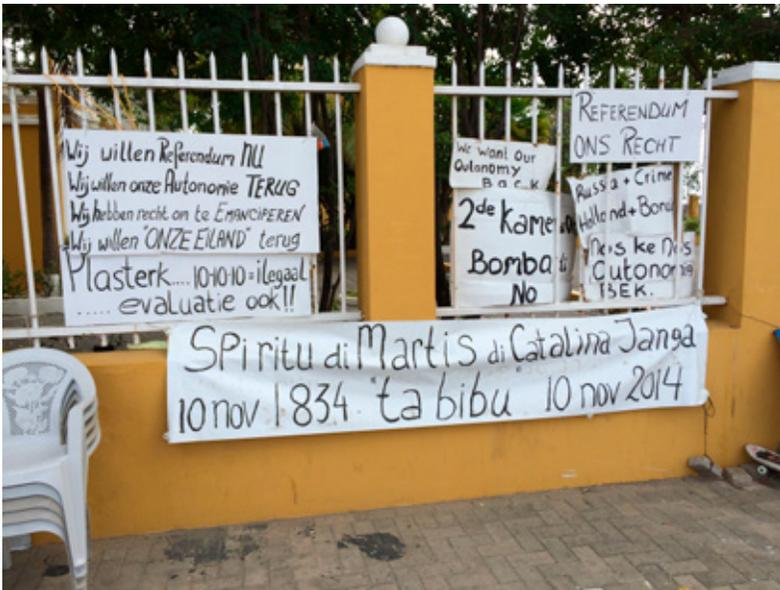 Wij willen Referendum NU
Wij willen onze Autonomie TERUG
Wij hebben recht om te EMANCIPEREN
Wij willen "ONZE EILAND" terug
Plasterk.... 10-10-10 = ilegaal
..... evaluatie ook!!
We Want Our
Outonomy
Back
2de Kamer
Bomba
NO
REFERENDUM
ONS RECHT
Russia + Crime
Holland + Bone
Nos ke Nos
Outonomia
BEK.
Spiritu di Martis di Catalina Janga
10 nov 1834 "ta bibu" 10 nov 2014